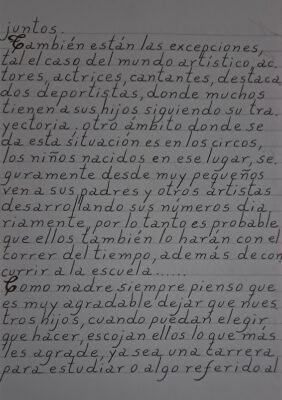 juntos.
También están las excepciones,
tal el caso del mundo artístico, ac.
tores, actrices, cantantes, destaca
dos deportistas, donde muchos
tienen a sus hijos siguiendo su tra.
yectoria. otro ámbito donde se
da esta situación es en los circos,
los niños nacidos en ese lugar, se.
guramente desde muy pequeños
ven a sus padres y otros artistas
desarrollando sus números dia
riamente, por lo tanto es probable
que ellos también lo harán con el
correr del tiempo, además de con
currir a la escuela......
Como madre siempre pienso que
es muy agradable dejar que nues
tros hijos, cuando puedan elegir
que hacer, escojan ellos lo que más
les agrade, ya sea una carrera
para estudiar o algo referido al